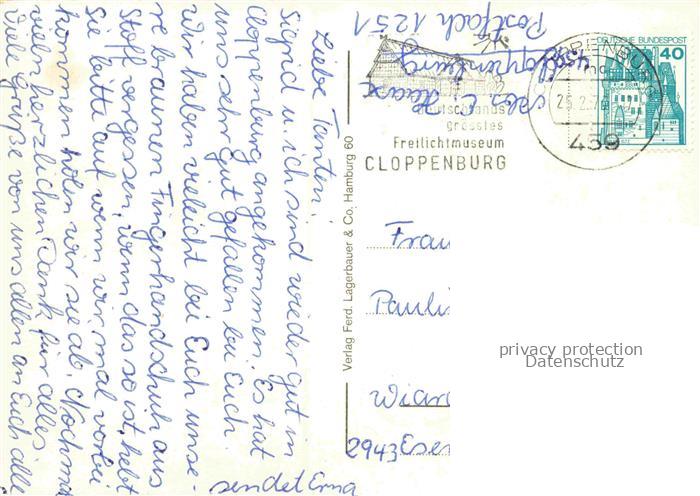 Liebe Tanten!
Sigrid u. ich sind wieder gut in
Cloppenburg angekommen. Es hat
uns sehr gut gefallen bei Euch.
Wir haben vieleicht bei Euch unse-
re braunen Fingerhandschuh aus
Stoff vergessen, wenn das so ist, hebt
Sie bitte auf wenn wir mal vorbei
kommen holen wir sie ab. Nochmal
vielen herzlichen Dank für alles
Viele Grüße von uns allen an Euch alle
sendet Erna
Postfach 1251
Cloppenburg
Verlag Ferd. Lagerbauer & Co., Hamburg 60
Deutschlands
grösstes
Freilichtmuseum
CLOPPENBURG
CLOPPENBURG
459
DEUTSCHE BUNDESPOST
40
Frau
Pauli
Wiard
2943 Esen
privacy protection
Datenschutz